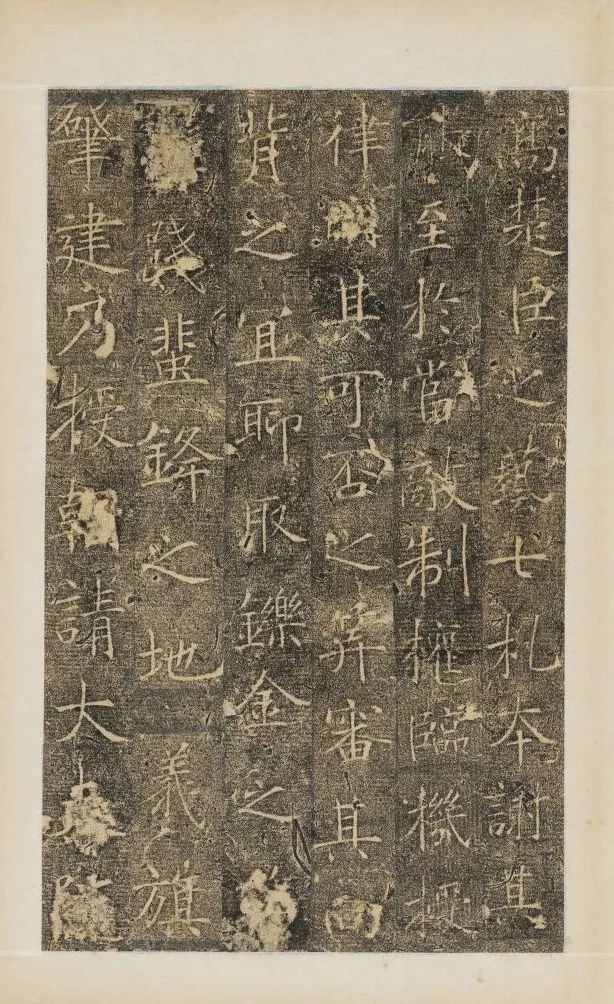 寫楚臣之藝七札本謝其
能至於當敵制權臨機
律其可否之筭審其向
背之宜聊取鑠金之
踐蜚鋒之地義旗
肇建乃授朝請大夫